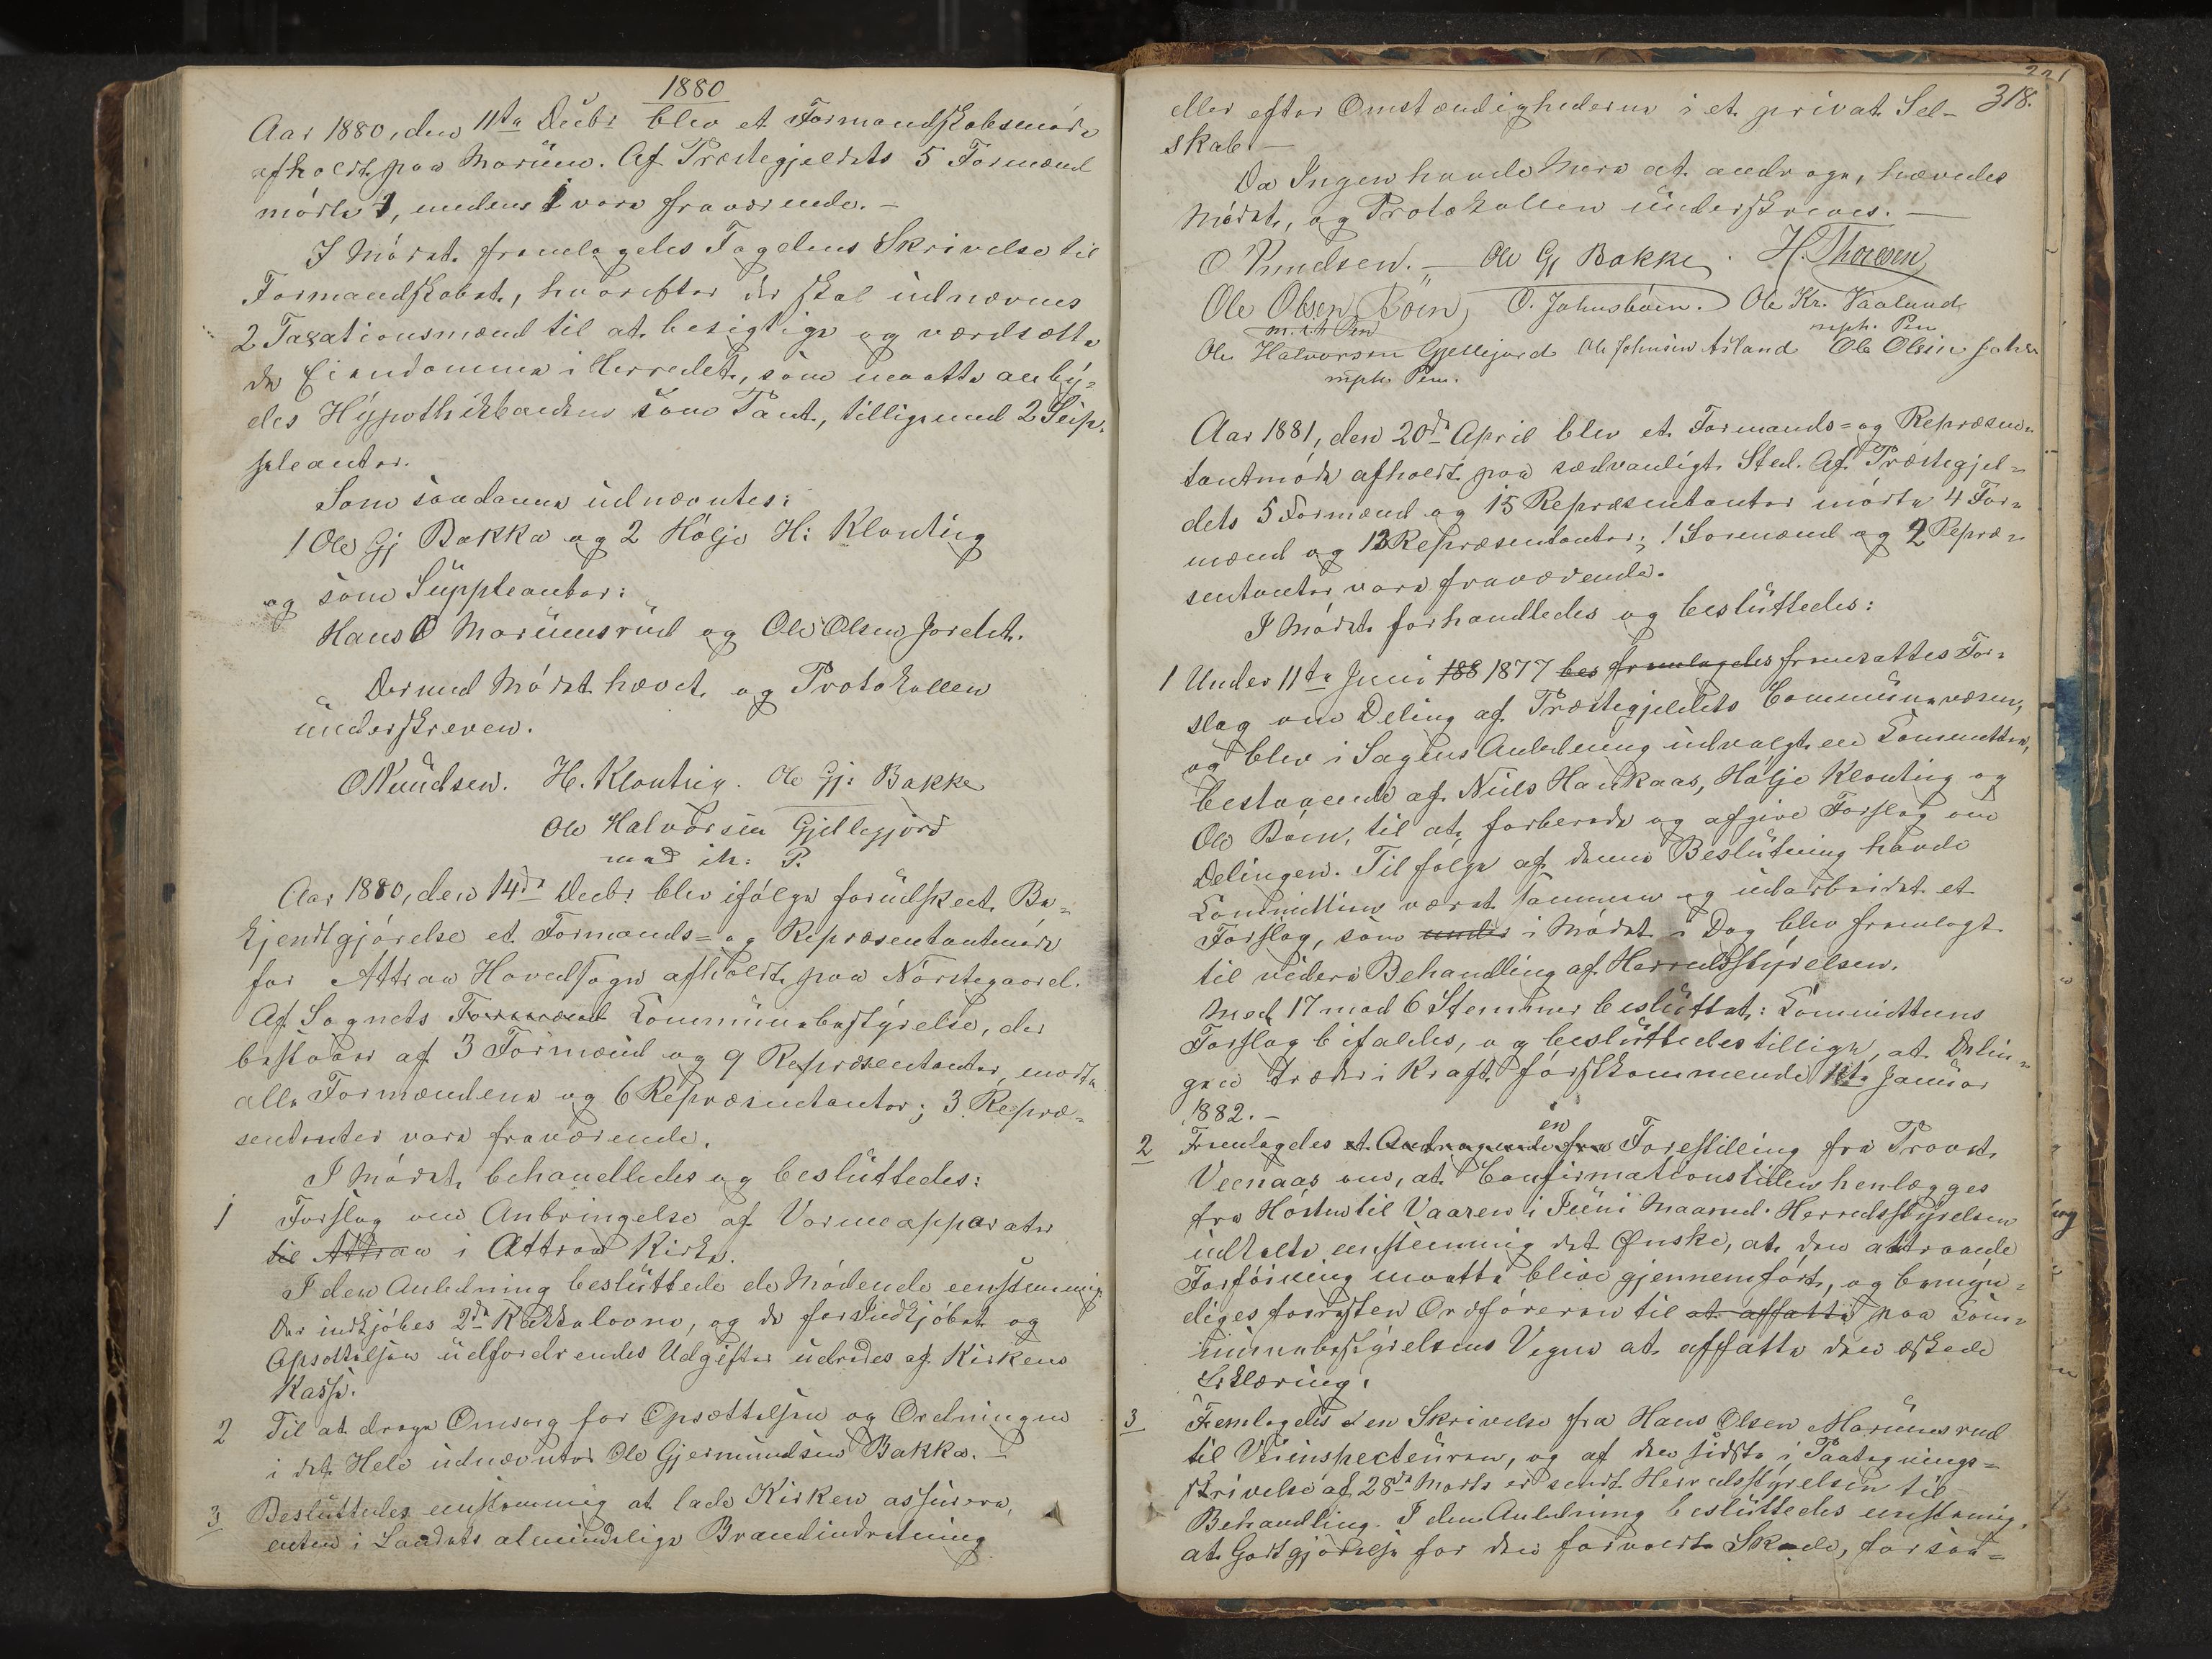 1880
Aar 1880, den 11te Decbr blev et Formandskabsmøde
afholdt paa Moruen. Af Præstegjeldets 5 Formænd
mødte, medens 1 vare fraværende. –
I Mødet fremlagdes Fogdens Skrivelse til
Formandskabet, hvorefter der skal udnævnes
2 Taxationsmænd til at besigtige og værdsætte
de Eiendomme i Herredet, som maatte anby-
des Hypothekbanken som Pant, tilligemed 2 Sup-
pleanter.
Som saadanne udnævntes:
1 Ole Gj Bakka og 2 Høljo H: Klonting
og som Suppleanter:
Hans O Moruensrud og Ole Olsen Jordet.
Dermed Mødet hævet og Protokollen
underskreven.
O Knudsen. H. Klonteig. Ole Gj: Bakke
Ole Halvorsen Gjellegjord
med ih: P.
Aar 1880, den 14de Decbr blev ifølge forudskeet Be-
kjendtgjørelse et Formands- og Repræsentantmøde
for Attraa Hovedsogn afholdt paa Nørstegaard.
Af Sognets Formænd Communebestyrelse, der
bestaaer af 3 Formænd og 9 Repræsentanter, mødte
alle Formændene og 6 Repræsentanter; 3 Repræ-
sentanter vare fraværende.
I Mødet behandledes og besluttedes:
1 Forslag om Anbringelse af Varmeapparater
til Attraa i Attraa Kirke.
I den Anledning besluttede de Mødende eenstemmig
Der indkjøbes 2de Kakkelovne, og de for Indkjøbet og
Opsættelsen udfordrendes Udgifter udredes af Kirkens
Kasse.
2 Til at drage Omsorg for Opsættelsen og Ordningen
i det Hele udnævntes Ole Gjermundsen Bakka. –
3 Besluttedes eenstemmig at lade Kirken assurere,
enten i Landets almindelige Brandindretning
221
318.
eller efter Omstændighederne i et privat Sel-
skab. –
Da Ingen havde Mere at andrage, hævedes
Mødet, og Protokollen underskreves. –
O Knudsen. – Ole Gj Bakke. H. Thoresen
Ole Olsen Bøen, O. Johnsbøen. Ole Kr. Vaalund
m. ih Pen mph. Pen
Ole Halvorsen Gjellejord Ole Johnsen Aasland Ole Olsen
mph. Pen.
Aar 1881, den 20de April blev et Formands- og Repræsen-
tantmøde afholdt paa sædvanligt Sted. Af Præstegjel-
dets 5 Formænd og 15 Repræsentanter mødte 4 For-
mænd og 13 Repræsentanter; 1 Formænd og 2 Repræ-
sentanter vare fraværende.
I Mødet forhandledes og besluttedes:
1 Under 11te Juni 188 1877 bes fremlagdes fremsattes For-
slag om Deling af Præstegjeldets Communevæsen,
og blev i Sagens Anledning udvalgt en Committee,
bestaaende af Niels Haukaas, Høljo Klonting og
Ole Bøen, til at forberede og afgive Forslag om
Delingen. Til følge af denne Beslutning havde
Committeen været sammen og udarbeidet et
Forslag, som undes i Mødet i Dag blev fremlagt
til videre Behandling af Herredsstyrelsen.
Med 17 mod 6 Stemmer besluttet: Committeens
Forslag bifaldes, og besluttedes tillige, at Delin-
gen træder i Kraft førstkommende 1te Januar
1882. –
2 Fremlagdes et Andragende fra en Forestilling fra Provst
Veenaas om, at Confirmationstiden henlægges
fra Høsten til Vaaren i Juni Maaned. Herredsstyrelsen
udtalte eenstemmig det Ønske, at den attraaede
Forføining maatte blive gjennemført, og bemyn-
diges forresten Ordføreren til at affatte paa Com-
munebestyrelsens Vegne at affatte den æskede
Erklæring.
3 Fremlagdes en Skrivelse fra Hans Olsen Moruensrud
til Veiinspecteuren, og af den sidste i Paategnings-
skrivelse af 28de Marts er sendt Herredsstyrelsen til
Behandling. I den Anledning besluttedes eenstemig,
at Godtgjørelse for den forvoldte Skade, for saa-